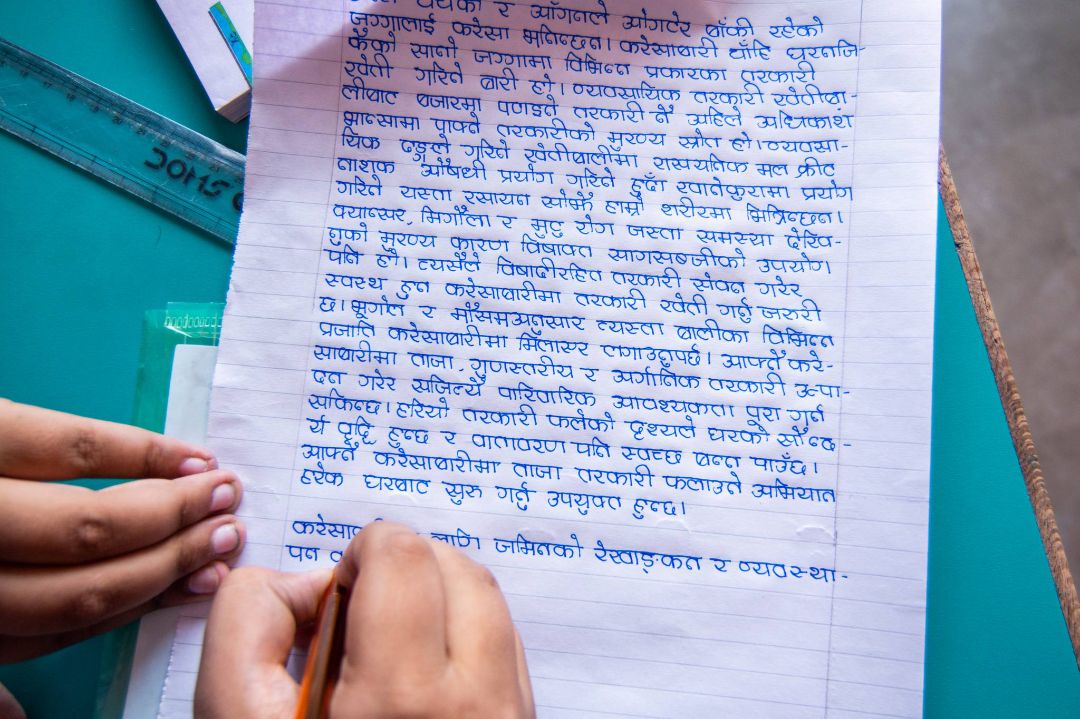 र आँगनले ओगटेर बाँकी रहेको
जग्गालाई करेसा भनिन्छन। करेसाबारी चाँहि घरनजि-
कैको सानो जग्गामा विभिन्न प्रकारका तरकारी
खेती गरिने बारी हो। व्यवसायिक तरकारी खेतीबा-
लीबाट बजारमा पठाइने तरकारी नै अहिले अधिकांश
भान्सामा पाक्ने तरकारीको मुख्य स्रोत हो। व्यवसा-
यिक ढङ्गले गरिने खेतीबालीमा रासायनिक मल कीट
नाशक औषधी प्रयोग गरिने हुँदा खानेकुरामा प्रयोग
गरिने यस्ता रसायन सोझै हाम्रो शरीरमा भित्रिन्छन।
क्यान्सर, मिर्गौला र मुटु रोग जस्ता समस्या देखि-
नुको मुख्य कारण विषाक्त सागसब्जीको उपयोग
पनि हो। त्यसैले विषादीरहित तरकारी सेवन गरेर
स्वस्थ हुन करेसाबारीमा तरकारी खेती गर्नु जरुरी
छ। भूगोल र मौसमअनुसार त्यस्ता बालीका विभिन्न
प्रजाति करेसाबारीमा मिलाएर लगाउनुपर्छ। आफ्नै करे-
साबारीमा ताजा, गुणस्तरीय र अर्गानिक तरकारी उत्पा-
दन गरेर सजिल्यै पारिवारिक आवश्यकता पूरा गर्न
सकिन्छ। हरियो तरकारी फलेको दृश्यले घरको सौन्द-
र्य वृद्धि हुन्छ र वातावरण पनि स्वच्छ बन्न पाउँछ।
आफ्नै करेसाबारीमा ताजा तरकारी फलाउने अभियान
हरेक घरबाट सुरु गर्नु उपयुक्त हुन्छ।
लागि जमिनको रेखाङ्कन र व्यवस्था-
पन
DOMS